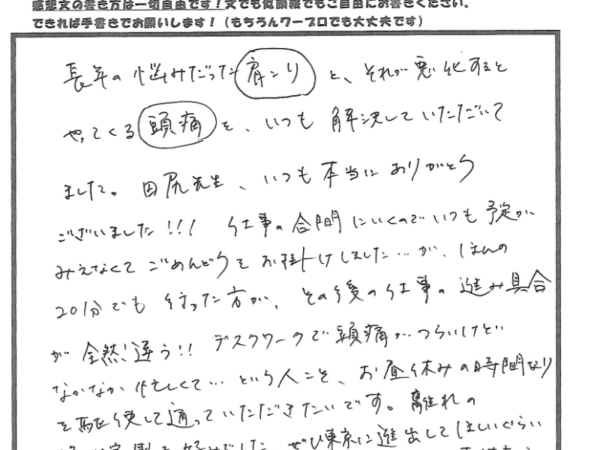 感想文の書き方は一切自由です！文でも似顔絵でもご自由にお書きください。
できれば手書きでお願いします！（もちろんワープロでも大丈夫です）
長年の悩みだった肩こりと、それが悪化すると
やってくる頭痛を、いつも解決していただいて
ました。田尻先生、いつも本当にありがとう
ございました!!! 仕事の合間にいくのでいつも予定が
みえなくてごめんどうをお掛けしました…が、ほんの
20分でも行った方が、その後の仕事の進み具合
が全然!違う!! デスクワークで頭痛が…つらいけど…
なかなか忙しくて…という人こそ、お昼休みの時間なり
を駆使して通っていただきたいです。離れの
ぜひ東京に進出してほしいぐらい